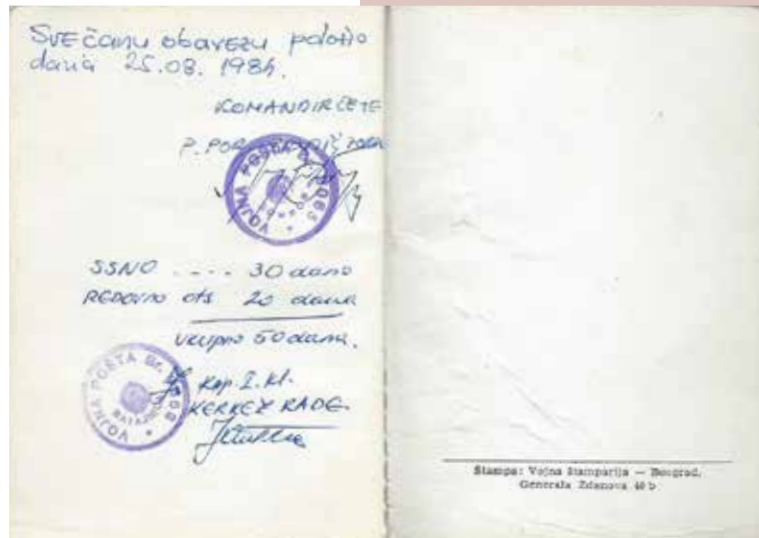 Svečanu obavezu položio
dana 25.08. 1984.
KOMANDIR ČETE
P. POR
VOJNA POŠTA
SSNO .... 30 dana
REDOVNO ots 20 dana
Ukupno 50 dana.
VOJNA POŠTA Br.
BATAJNICA
Kap. I. kl.
KERKEZ RADE
Štampa: Vojna štamparija — Beograd,
Generala Ždanova 40 b